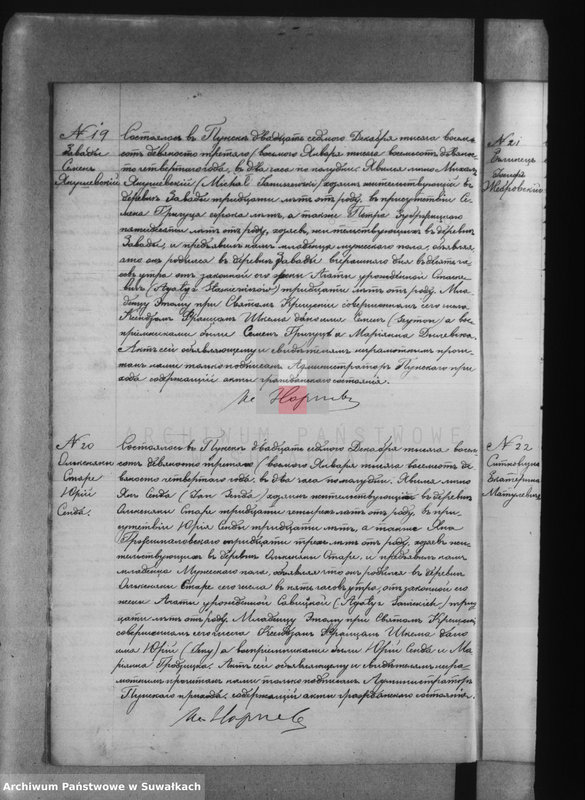 N 19
Завады
Семен
Янушевскій
Состоялось въ Пунскѣ двадцать седьмого Декабря тысяча восемь
сотъ девяносто третьяго / восьмого Января тысяча восемьсотъ девяно-
сто четвертаго года, въ два часа по полудни. Явился лично Михаилъ
Янушевскій / Michał Januszewicz / хозяинъ жительствующій въ
деревнѣ Завады тридцати лѣтъ отъ роду, въ присутствіи Се-
мена Григуца сорока лѣтъ, а также Петра
пятидесяти лѣтъ отъ роду, хозяевъ, жительствующихъ въ деревнѣ
Завады, и предъявилъ намъ младенца мужескаго пола, объявляя
что онъ родился въ деревнѣ Завады вчерашняго дня въ девять ча-
совъ утра отъ законной его жены Агаты урожденной Станке-
вичъ (Agaty z Stankiewiczów) тридцати лѣтъ отъ роду. Мла-
денцу этому при Святомъ Крещеніи совершенномъ сего числа
Ксендзомъ Францомъ Шкема дано имя Семенъ (Szymon) а вос-
пріемниками были Семенъ Григуцъ и Маріанна
Актъ сей объявляющему и свидѣтелямъ неграмотнымъ прочи-
танъ нами только подписанъ. Администраторъ Пунскаго при-
хода содержащій акты гражданскаго состоянія.
N 20
Ошкиняны
Старе
Юрій
Сенда.
Состоялось въ Пунскѣ двадцать седьмого Декабря тысяча восемь
сотъ девяносто третьяго / восьмого Января тысяча восемьсотъ де-
вяносто четвертаго года, въ два часа по полудни. Явился лично
Янъ Сенда (Jan Senda) хозяинъ жительствующій въ деревнѣ
Старе тридцати четырехъ лѣтъ отъ роду, въ при-
сутствіи Юрія Сенды тридцати лѣтъ, а также Яна
тридцати трехъ лѣтъ отъ роду, хозяевъ жи-
тельствующихъ въ деревнѣ Старе, и предъявилъ намъ
младенца мужескаго пола, объявляя что онъ родился въ деревнѣ
Старе сего числа въ пять часовъ утра, отъ законной его
жены Агаты урожденной Савицкой (Agaty z Sawickich) трид-
цати лѣтъ отъ роду. Младенцу этому при Святомъ Крещеніи
совершенномъ сего числа Ксендзомъ Францомъ Шкема дано
имя Юрій (Jerzy) а воспріемниками были Юрій Сенда и Ма-
ріанна Актъ сей объявляющему и свидѣтелямъ негра-
мотнымъ прочитанъ нами только подписанъ Администраторъ
Пунскаго прихода, содержащій акты гражданскаго состоянія.
N 21
N 22
Екатерина
Матулевичъ
ARCHIWUM PAŃSTWOWE
Archiwum Państwowe w Suwałkach